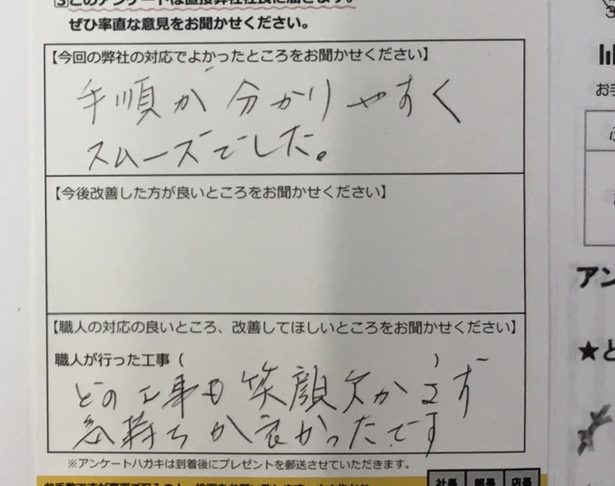 3 このアンケートは直接弊社社長に届きます。
ぜひ率直な意見をお聞かせください。
【今回の弊社の対応でよかったところをお聞かせください】
手順が分かりやすく
スムーズでした。
【今後改善した方が良いところをお聞かせください】
【職人の対応の良いところ、改善してほしいところをお聞かせください】
職人が行った工事( )
どの工事も笑顔欠かさず
気持ちが良かったです
※アンケートハガキは到着後にプレゼントを郵送させていただきます。
社長 部長 店長
お手
アン
★と